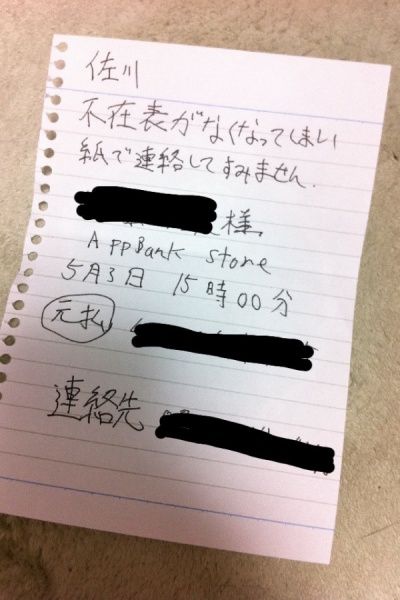 佐川
不在表がなくなってしまい
紙で連絡してすみません.
様
AppBank Store
5月3日 15時00分
元払
連絡先